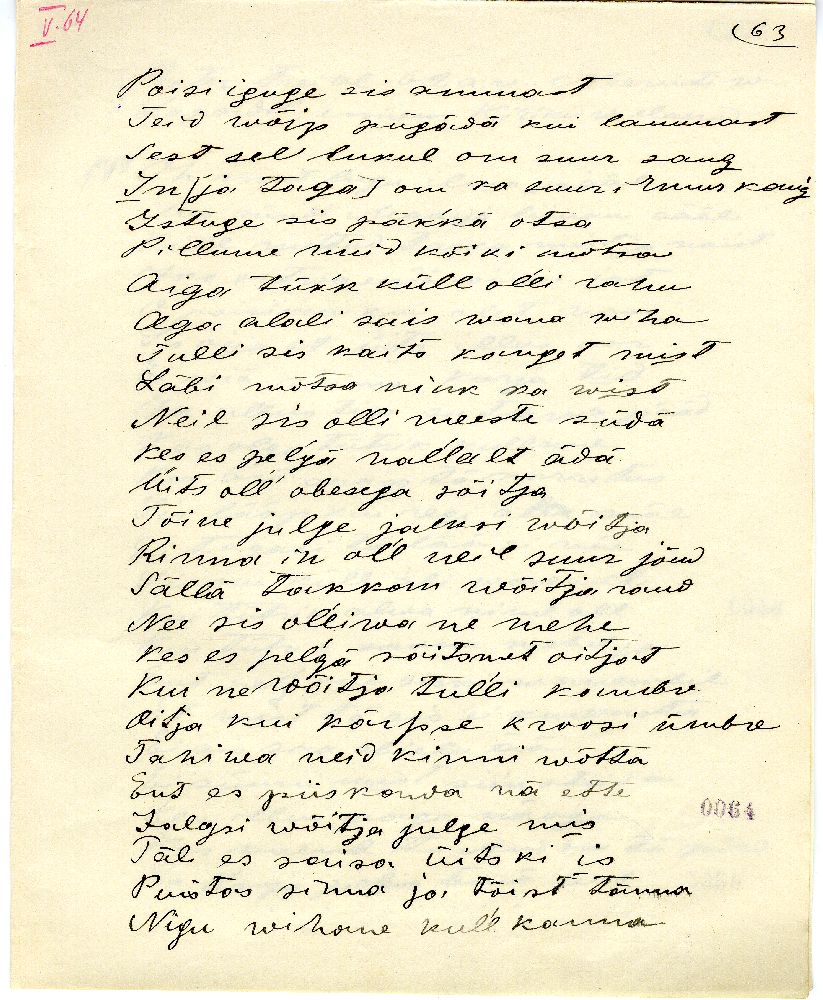 V.64
63
Poisi iguge sis ammast
Teid wõip pügädä kui lammast
Sest sel lukul om suur sang
In [ja taga] om ka suur, kang
Istuge sis päkkä otsa
Pillume nüid kõiki mõtsa
Aiga tükk küll olli rahu
Aga alali sais wana wiha
Tulli sis kaits kanget mist
Läbi mõtsa nink ka wist
Neil sis olli meeste südä
Kes es pelgä nallalt ädä
Üits oll obesega sõitja
Tõine julge jalksi wõitja
Rinna in oll neil suur jõud
Sällä takkan wõitja raud
Nee sis olliwa ne mehe
Kes es pelgä sõitsmet oitjat
Kui ne wõitja tulli kambre
Oitja kui kärpse kroosi ümbre
Tahiwa neid kinni wõtta
Ent es püskawa nä ette
Jalgsi wõitja julge mis
Täl es saisa üitski is
Puistas sinna ja tõist tänna
Nigu wihane kull kanna
0064